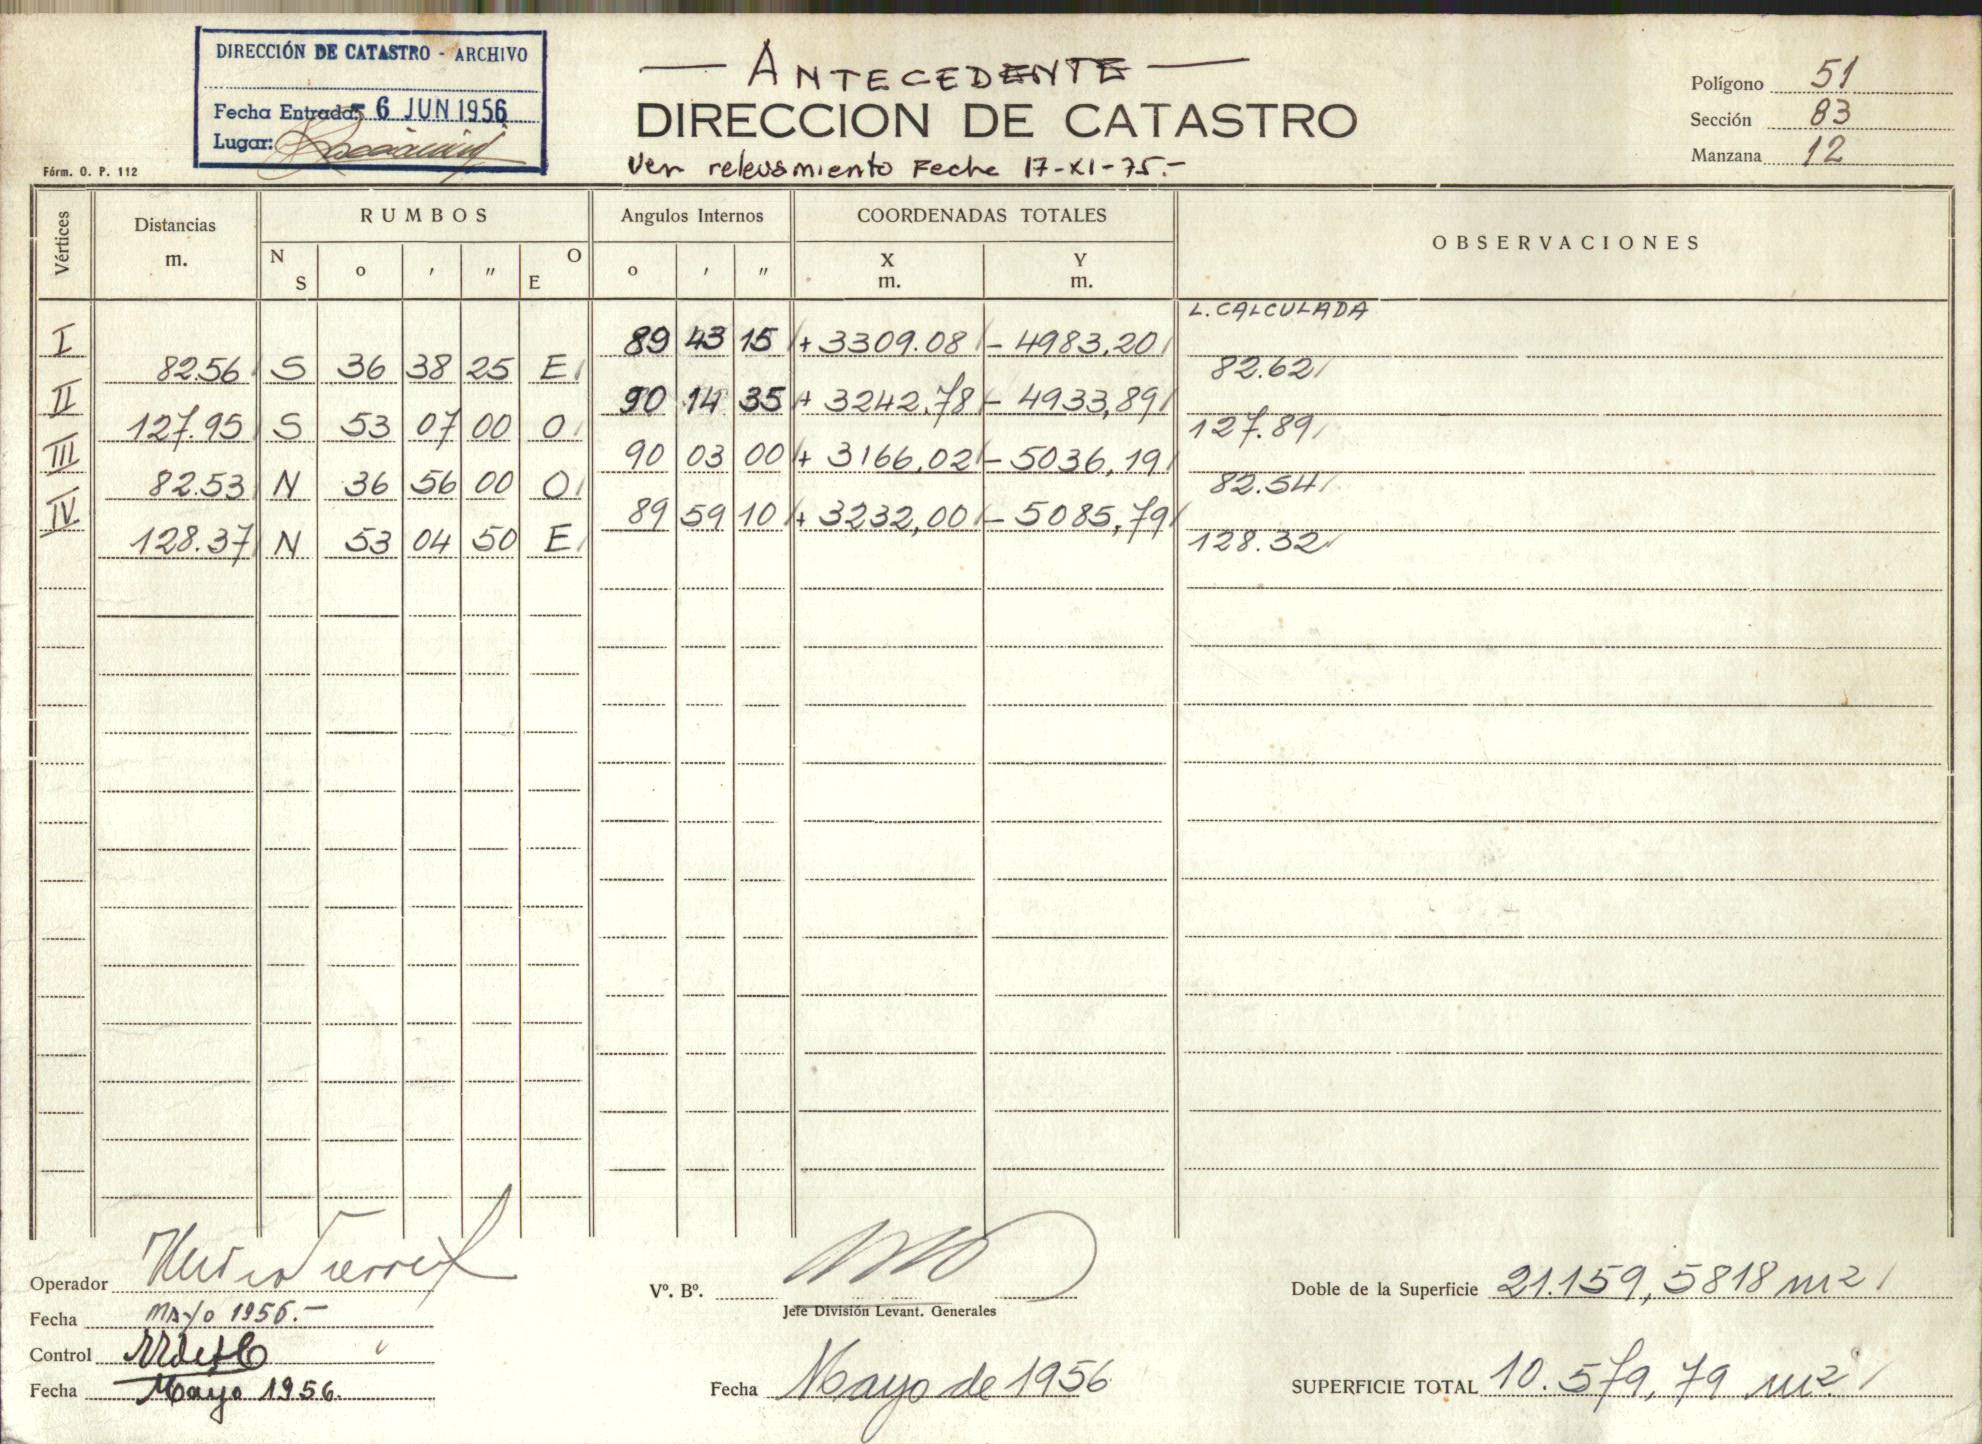 DIRECCIÓN DE CATASTRO - ARCHIVO
Fecha Entrada: 6 JUN 1956
Lugar:
Fórm. O. P. 112
— ANTECEDENTE —
DIRECCION DE CATASTRO
Ver relevamiento Fecha 17-XI-75.-
Polígono 51
Sección 83
Manzana 12
Vértices Distancias m. RUMBOS Angulos Internos COORDENADAS TOTALES OBSERVACIONES
N S o ' " O E o ' " X m. Y m.
L. CALCULADA
I 89 43 15 + 3309.08 - 4983,20
82.56 S 36 38 25 E 82.62
II 90 14 35 + 3242,78 - 4933,89
127.95 S 53 07 00 O 127.89
III 90 03 00 + 3166,02 - 5036,19
82.53 N 36 56 00 O 82.54
IV 89 59 10 + 3232,00 - 5085,79
128.37 N 53 04 50 E 128.32
Operador
Fecha MAYO 1956.-
Control
Fecha Mayo 1956.
Vº. Bº.
Jefe División Levant. Generales
Fecha Mayo de 1956
Doble de la Superficie 21.159,5818 m2
SUPERFICIE TOTAL 10.579,79 m2